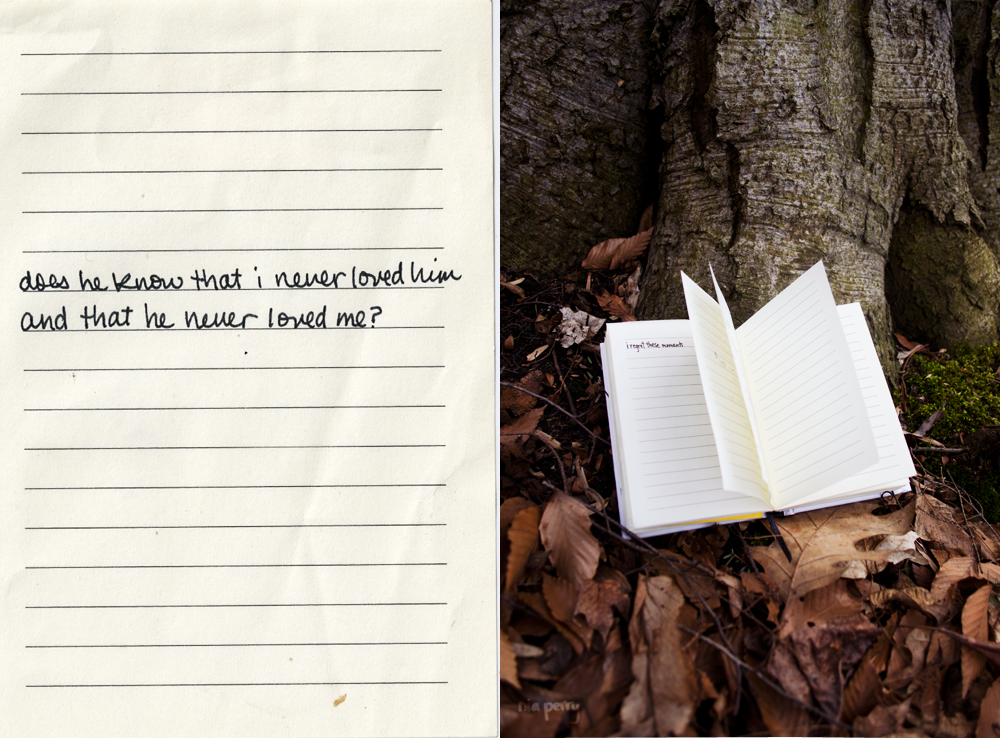 does he know that i never loved him
and that he never loved me?
i regret these moments
perry